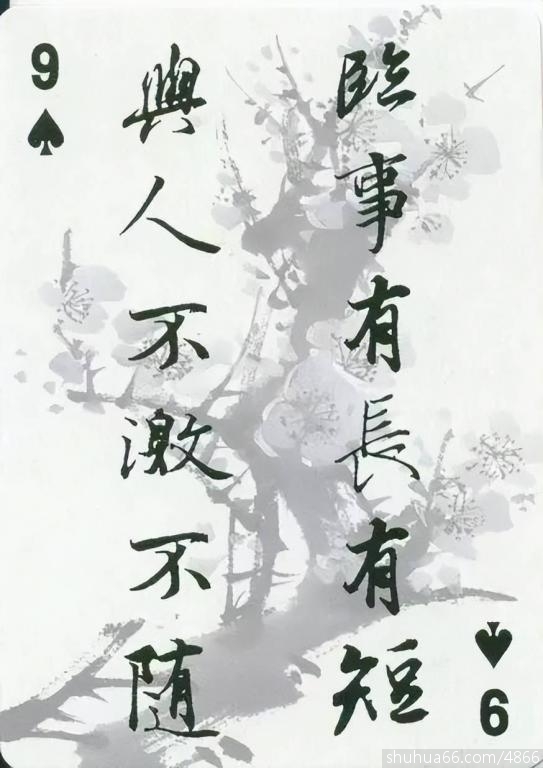 9
臨事有長有短
與人不激不随
9
shuhua66.com/4866